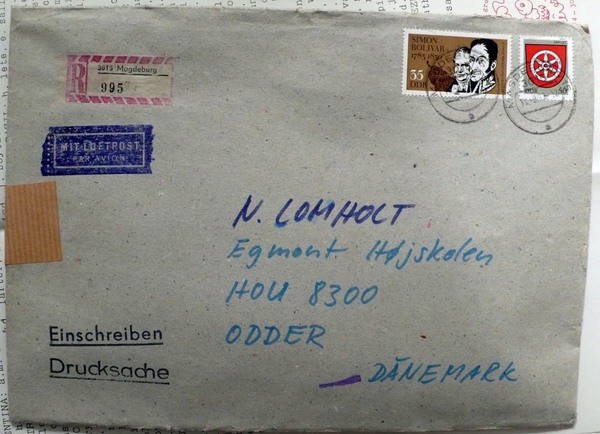 SIMON
BOLIVAR
1783 1830
35
DDR
R
3015 Magdeburg
995
MIT LUFTPOST
PAR AVION
N. LOMHOLT
Egmont Højskolen
HOU 8300
ODDER
DÄNEMARK
Einschreiben
Drucksache